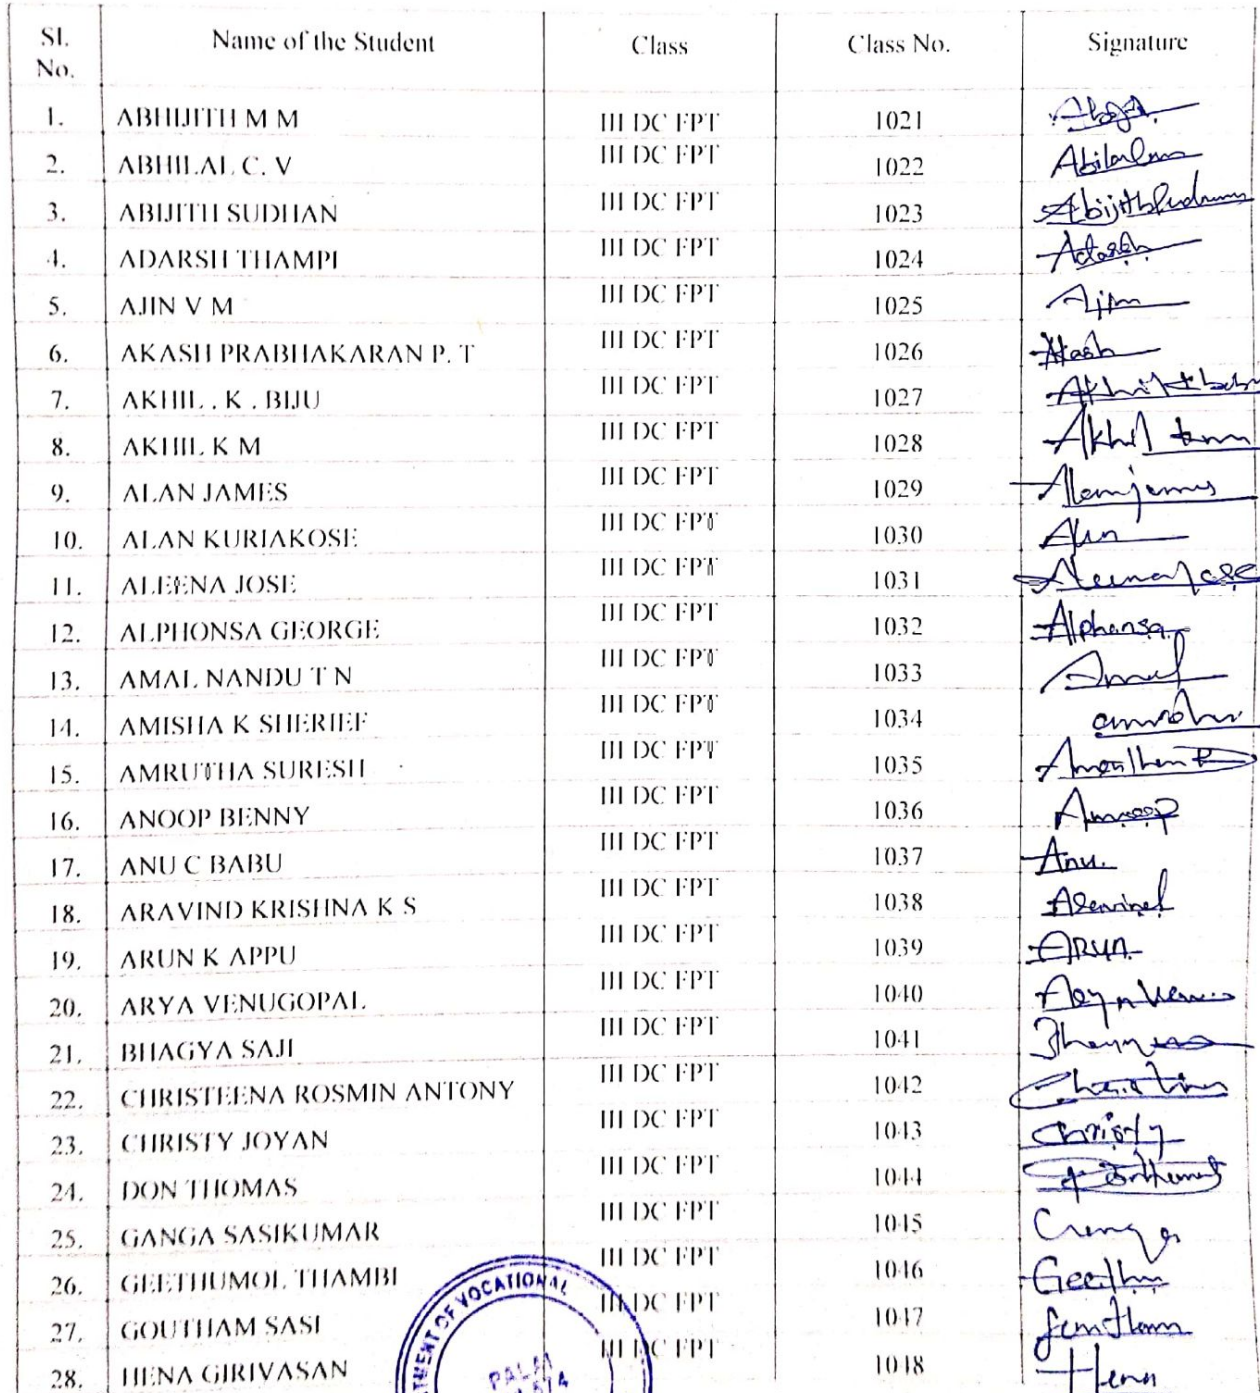 Sl. No. Name of the Student Class Class No. Signature
1. ABHIJITH M M III DC FPT 1021
2. ABHILAL C. V III DC FPT 1022 Abilal
3. ABIJITH SUDHAN III DC FPT 1023 Abijith Sudhan
4. ADARSH THAMPI III DC FPT 1024 Adarsh
5. AJIN V M III DC FPT 1025 Ajin
6. AKASH PRABHAKARAN P. T III DC FPT 1026 Akash
7. AKHIL . K . BIJU III DC FPT 1027 Akhil
8. AKHIL K M III DC FPT 1028 Akhil
9. ALAN JAMES III DC FPT 1029 Alan james
10. ALAN KURIAKOSE III DC FPT 1030 Alan
11. ALEENA JOSE III DC FPT 1031 Aleena Jose
12. ALPHONSA GEORGE III DC FPT 1032 Alphonsa
13. AMAL NANDU T N III DC FPT 1033 Amal
14. AMISHA K SHERIEF III DC FPT 1034 amisha
15. AMRUTHA SURESH III DC FPT 1035
16. ANOOP BENNY III DC FPT 1036 Anoop
17. ANU C BABU III DC FPT 1037 Anu.
18. ARAVIND KRISHNA K S III DC FPT 1038 Aravind
19. ARUN K APPU III DC FPT 1039 ARUN
20. ARYA VENUGOPAL III DC FPT 1040 Arya
21. BHAGYA SAJI III DC FPT 1041
22. CHRISTEENA ROSMIN ANTONY III DC FPT 1042
23. CHRISTY JOYAN III DC FPT 1043 Christy
24. DON THOMAS III DC FPT 1044
25. GANGA SASIKUMAR III DC FPT 1045 Ganga
26. GEETHUMOL THAMBI III DC FPT 1046 Geethu
27. GOUTHAM SASI III DC FPT 1047
28. HENA GIRIVASAN III DC FPT 1048 Hena
OF VOCATIONAL